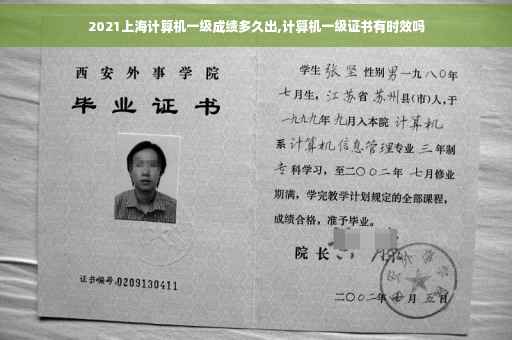 2021上海计算机一级成绩多久出,计算机一级证书有时效吗
西安外事学院
毕业证书
证书编号:0209130411
学生 张坚 性别男 一九八〇年
七月生，江苏省 苏州县(市)人,于
一九九九年 九月入本院 计算机
系 计算机信息管理专业 三 年制
专 科学习，至二〇〇二年 七月修业
期满，学完教学计划规定的全部课程，
成绩合格，准予毕业。
院长
二〇〇二年 七 月 五 日